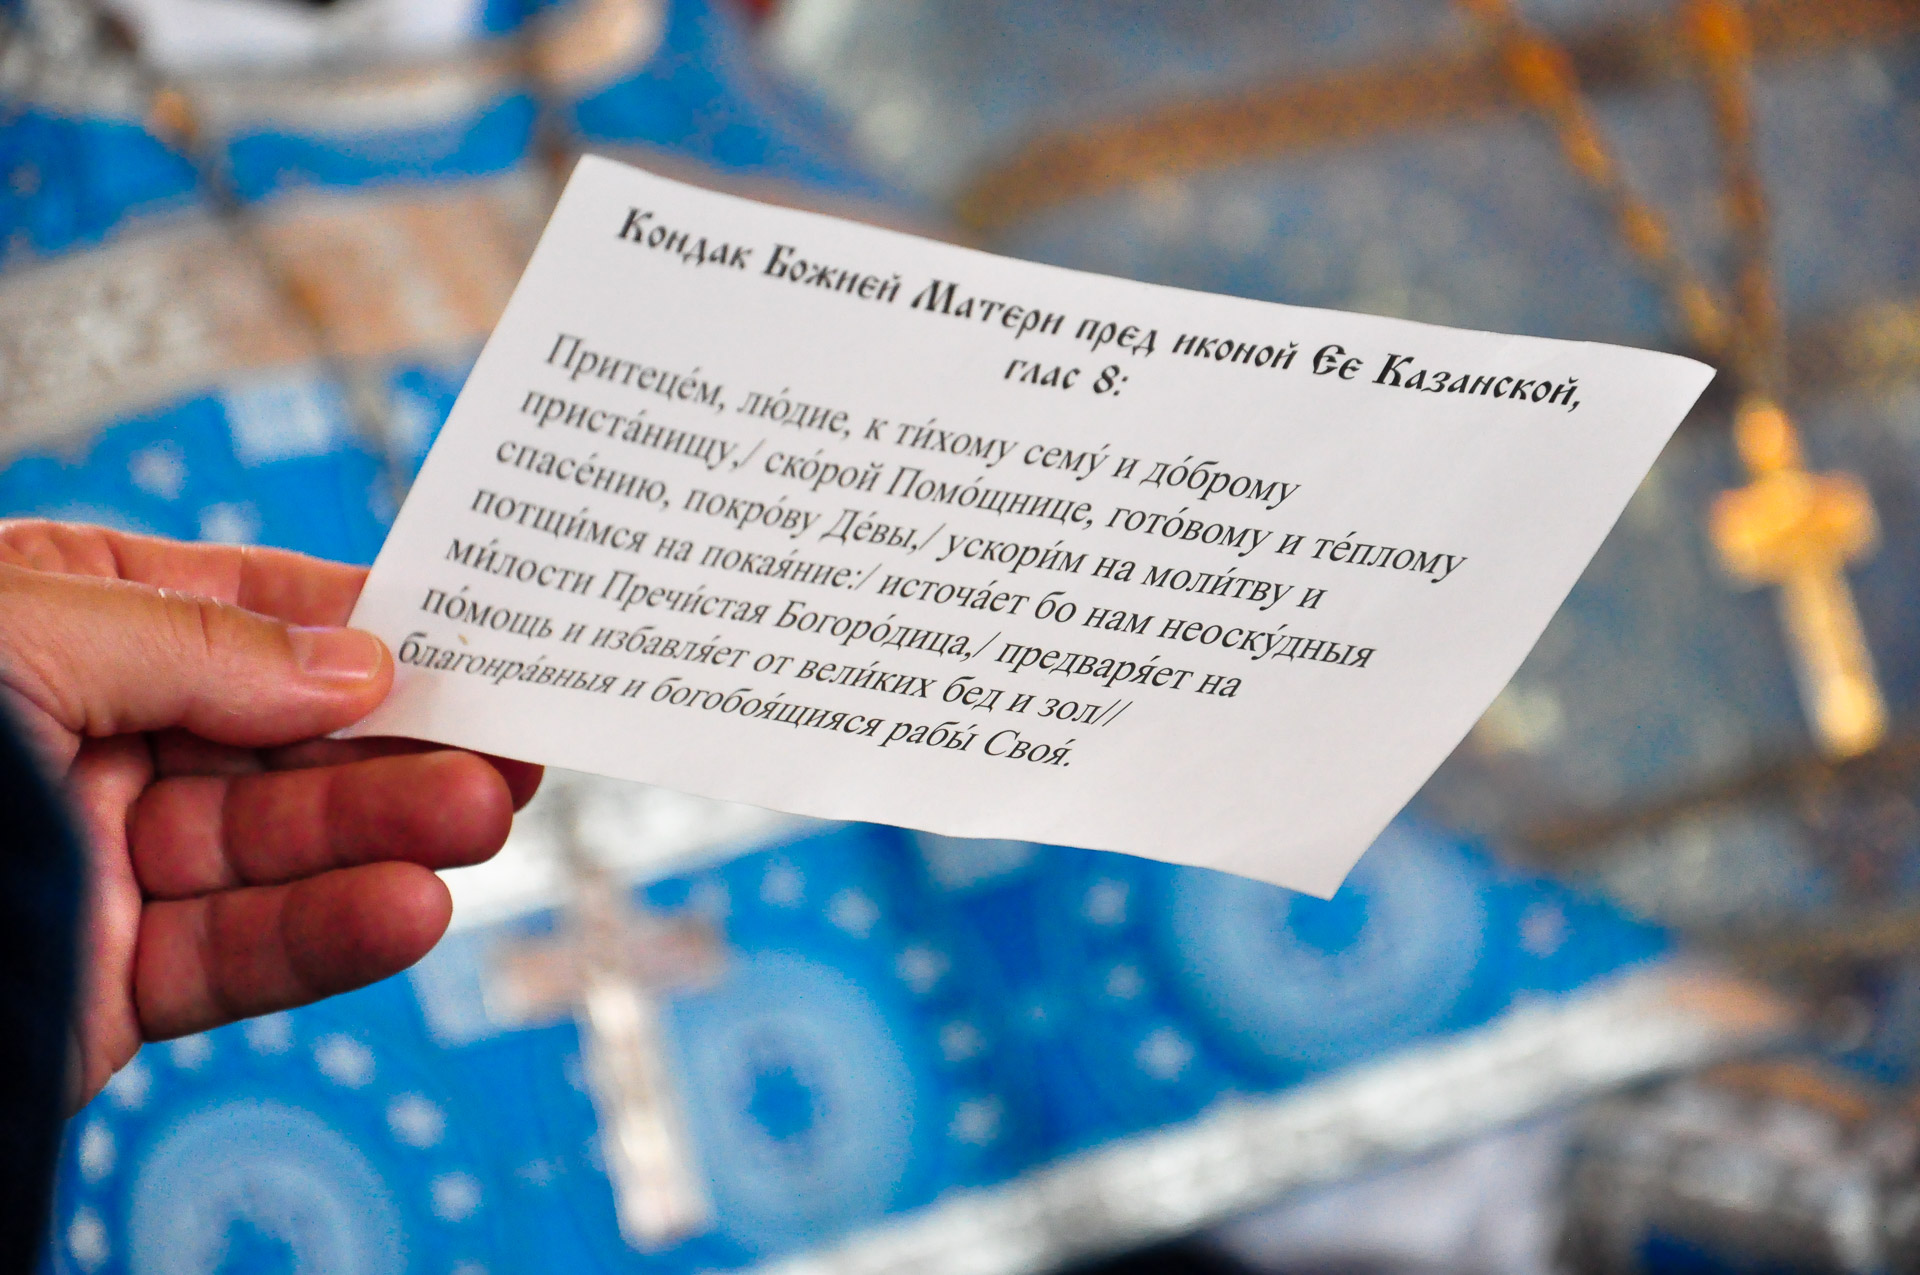 Кондак Божией Матери пред иконой Ее Казанской,
глас 8:
Притеце́м, лю́дие, к ти́хому сему́ и до́брому
приста́нищу,/ ско́рой Помо́щнице, гото́вому и те́плому
спасе́нию, покро́ву Де́вы,/ ускори́м на моли́тву и
потщи́мся на покая́ние:/ источа́ет бо нам неоску́дныя
ми́лости Пречи́стая Богоро́дица,/ предваря́ет на
по́мощь и избавля́ет от вели́ких бед и зол//
благонра́вныя и богобоя́щияся рабы́ Своя́.